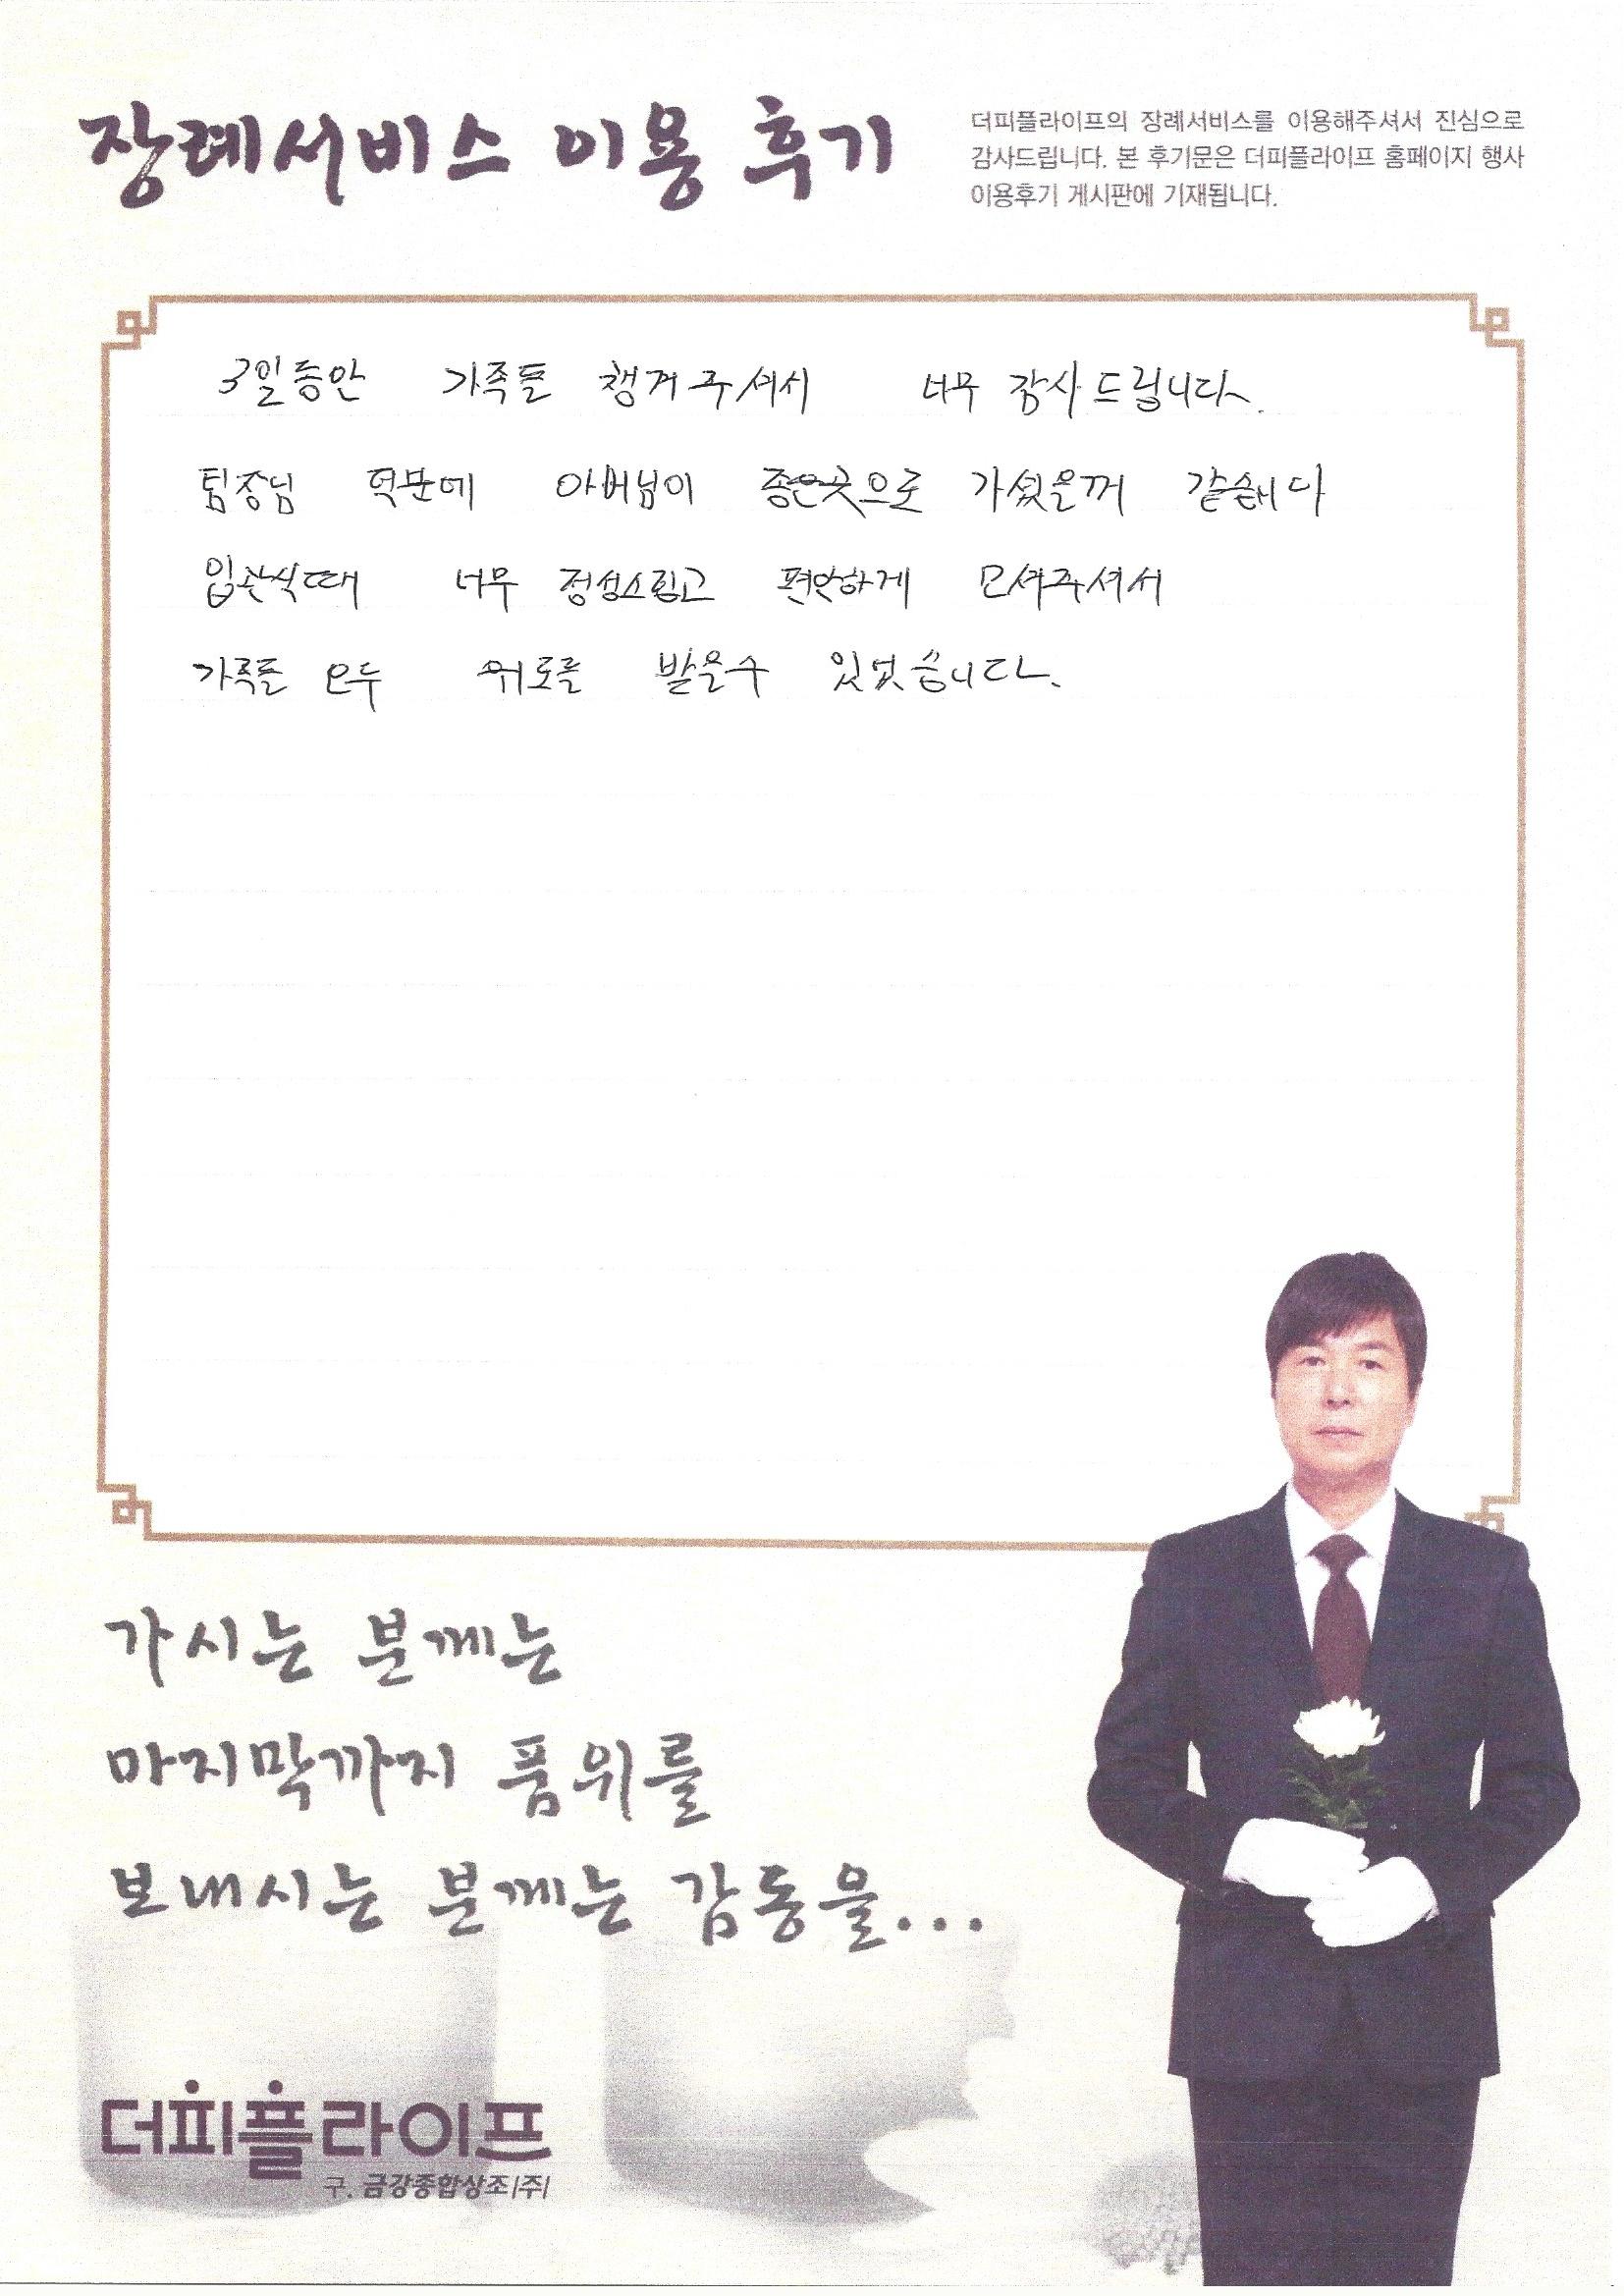 장례서비스 이용 후기
더피플라이프의 장례서비스를 이용해주셔서 진심으로
감사드립니다. 본 후기문은 더피플라이프 홈페이지 행사
이용후기 게시판에 기재됩니다.
3일동안 가족들 챙겨주셔서 너무 감사드립니다.
팀장님 덕분에 아버님이 좋은곳으로 가셨을꺼 같습니다
입관식때 너무 정성스럽고 편안하게 모셔주셔서
가족들 모두 위로를 받을수 있었습니다.
가시는 분께는
마지막까지 품위를
보내시는 분께는 감동을...
더피플라이프
구. 금강종합상조(주)